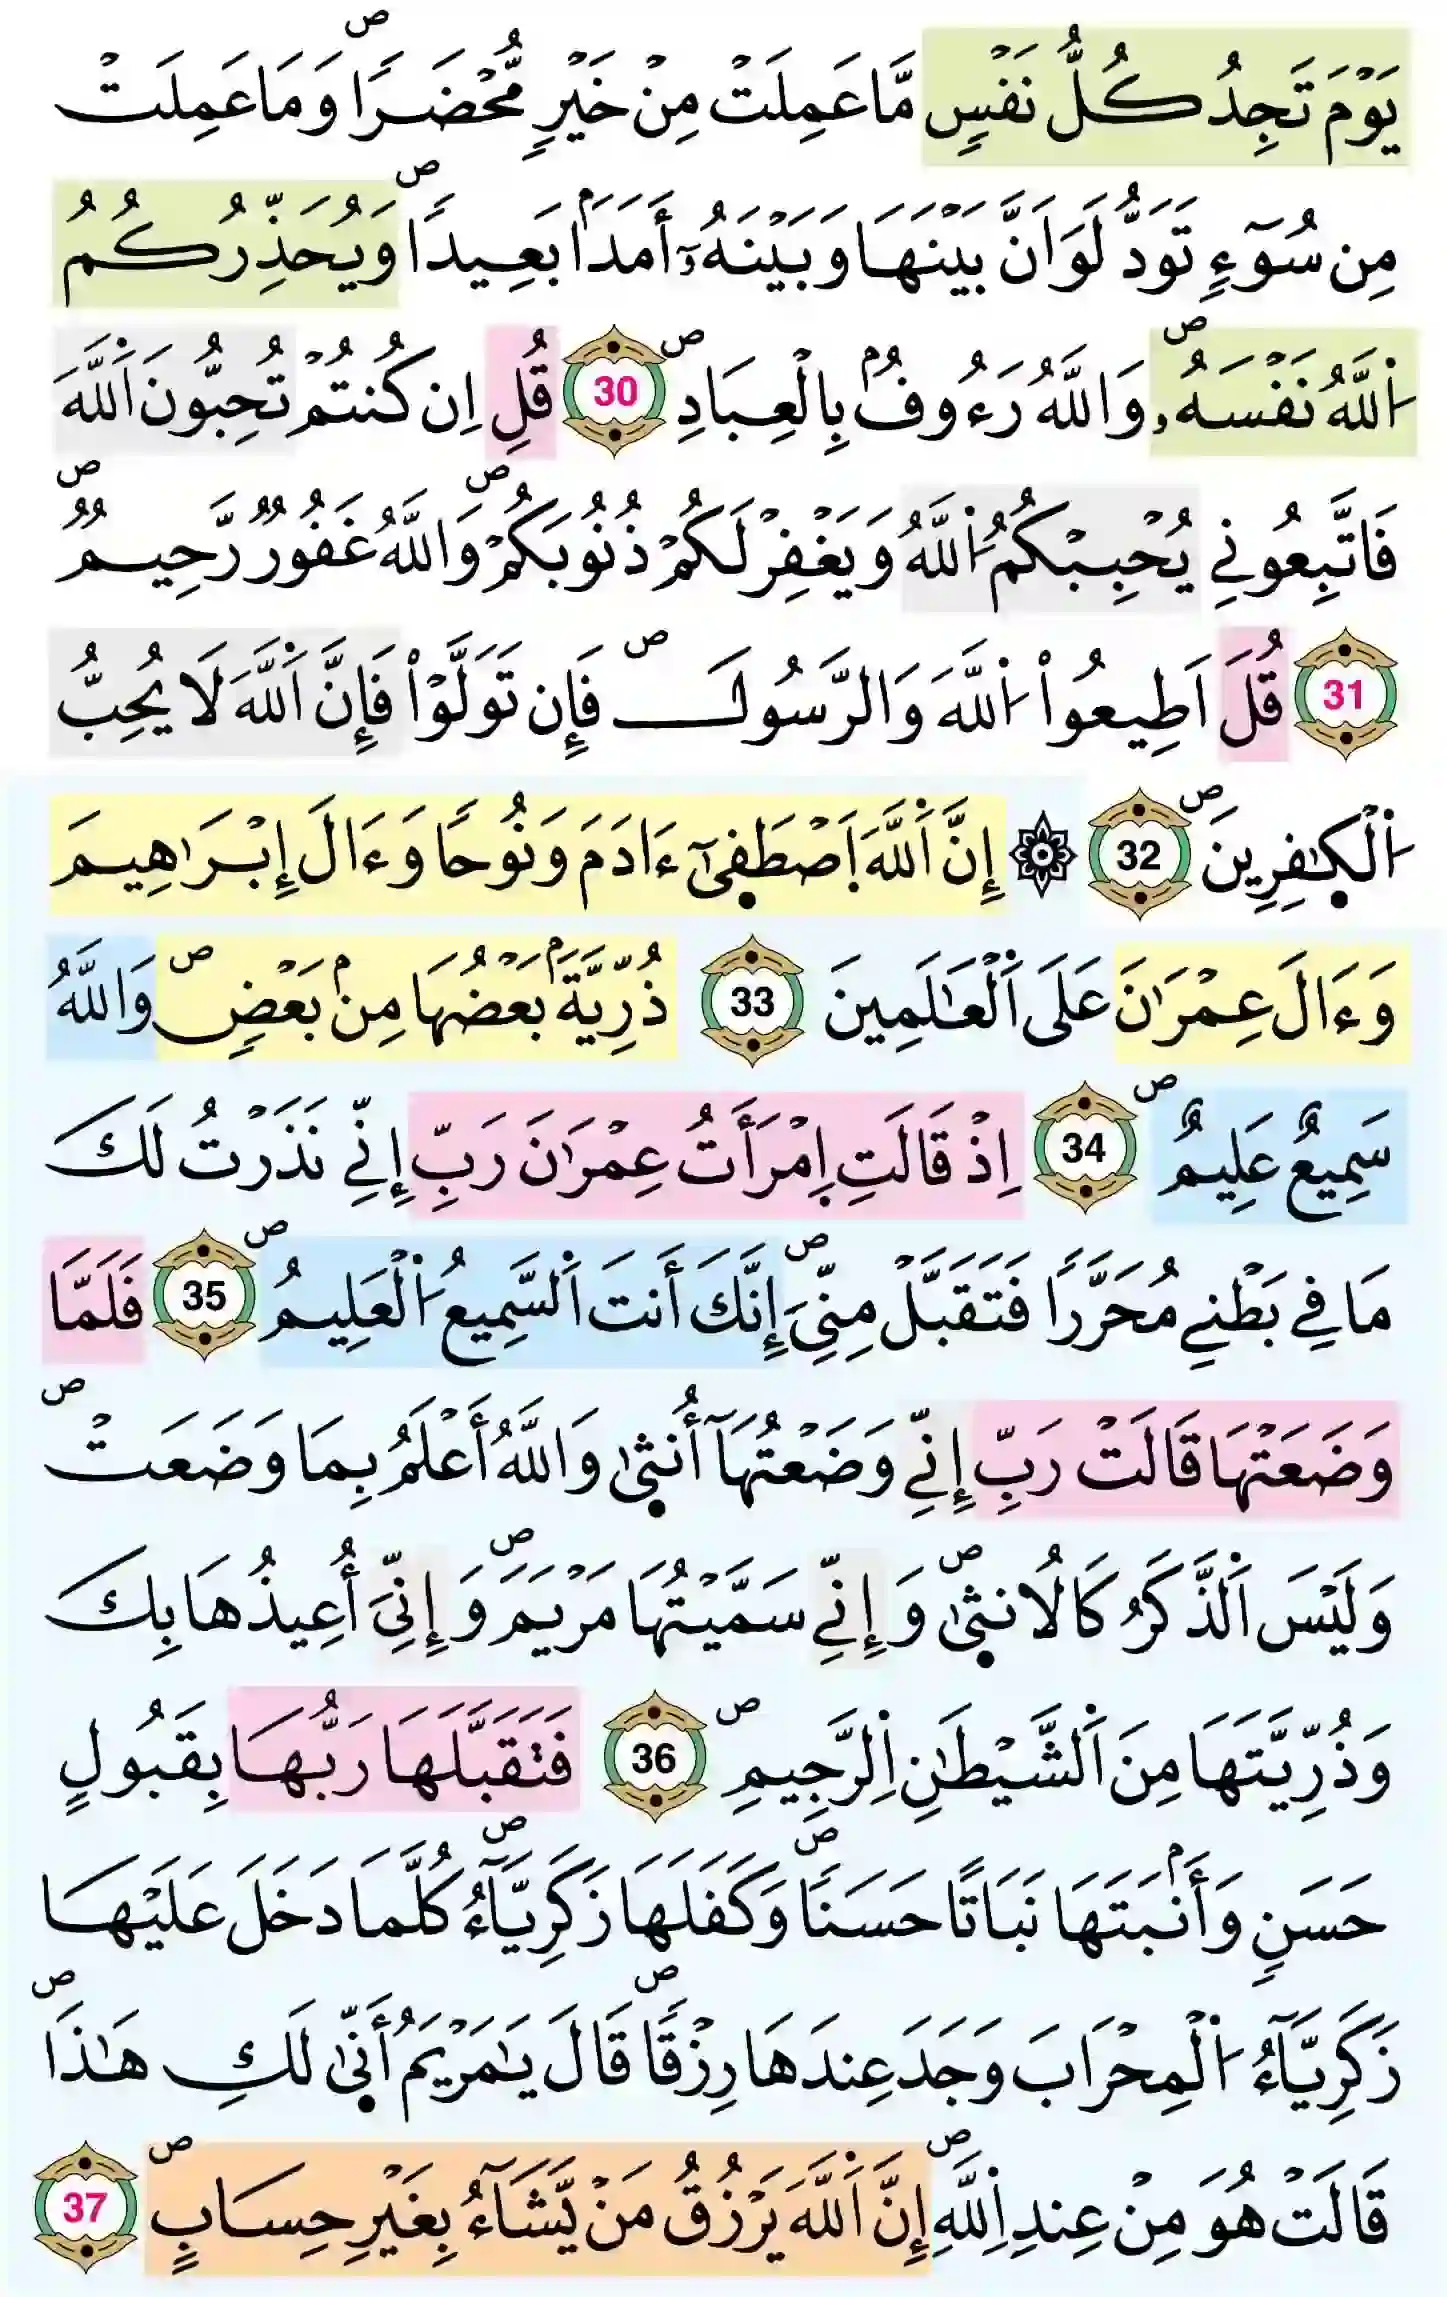 يَوْمَ تَجِدُ كُلُّ نَفْسٍ مَّا عَمِلَتْ مِنْ خَيْرٍ مُّحْضَرًاۖ وَمَا عَمِلَتْ
مِن سُوٓءٍ تَوَدُّ لَوَ اَنَّ بَيْنَهَا وَبَيْنَهُۥٓ أَمَدَۢا بَعِيدًاۖ وَيُحَذِّرُكُمُ
اُ۬للَّهُ نَفْسَهُۥۖ وَاللَّهُ رَءُوفُۢ بِالْعِبَادِۖ 30 قُلِ اِن كُنتُمْ تُحِبُّونَ اَ۬للَّهَ
فَاتَّبِعُونِي يُحْبِبْكُمُ اُ۬للَّهُ وَيَغْفِرْ لَكُمْ ذُنُوبَكُمْۖ وَاللَّهُ غَفُورٌ رَّحِيمٌۖ
31 قُلَ اَطِيعُواْ اُ۬للَّهَ وَالرَّسُولَۖ فَإِن تَوَلَّوْاْ فَإِنَّ اَ۬للَّهَ لَا يُحِبُّ
اُ۬لْكٰ۪فِرِينَۖ 32 ۞ إِنَّ اَ۬للَّهَ اَ۪صْطَف۪ىٰٓ ءَادَمَ وَنُوحًا وَءَالَ إِبْرَٰهِيمَ
وَءَالَ عِمْرَٰنَ عَلَى اَ۬لْعَٰلَمِينَ 33 ذُرِّيَّةَۢ بَعْضُهَا مِنۢ بَعْضٍۖ وَاللَّهُ
سَمِيعٌ عَلِيمٌۖ 34 اِذْ قَالَتِ اِ۪مْرَأَتُ عِمْرَٰنَ رَبِّ إِنِّي نَذَرْتُ لَكَ
مَا فِي بَطْنِي مُحَرَّرًا فَتَقَبَّلْ مِنِّيَۖ إِنَّكَ أَنتَ اَ۬لسَّمِيعُ اُ۬لْعَلِيمُۖ 35 فَلَمَّا
وَضَعَتْهَا قَالَتْ رَبِّ إِنِّي وَضَعْتُهَآ أُنث۪ىٰ وَاللَّهُ أَعْلَمُ بِمَا وَضَعَتْۖ
وَلَيْسَ اَ۬لذَّكَرُ كَالُانث۪ىٰۖ وَإِنِّي سَمَّيْتُهَا مَرْيَمَۖ وَإِنِّيَ أُعِيذُهَا بِكَ
وَذُرِّيَّتَهَا مَِنَ اَ۬لشَّيْطَٰنِ اِ۬لرَّجِيمِۖ 36 فَتَقَبَّلَهَا رَبُّهَا بِقَبُولٍ
حَسَنٍ وَأَنۢبَتَهَا نَبَاتًا حَسَنًاۖ وَكَفَلَهَا زَكَرِيَّآءُۖ كُلَّمَا دَخَلَ عَلَيْهَا
زَكَرِيَّآءُ اُ۬لْمِحْرَابَ وَجَدَ عِندَهَا رِزْقًاۖ قَالَ يَٰمَرْيَمُ أَنّ۪ىٰ لَكِ هَٰذَاۖ
قَالَتْ هُوَ مِنْ عِندِ اِ۬للَّهِۖ إِنَّ اَ۬للَّهَ يَرْزُقُ مَنْ يَّشَآءُ بِغَيْرِ حِسَابٍۖ 37